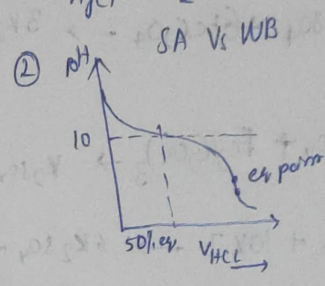 SA Vs WB
② pH
10
eq point
50% eq. VHCl